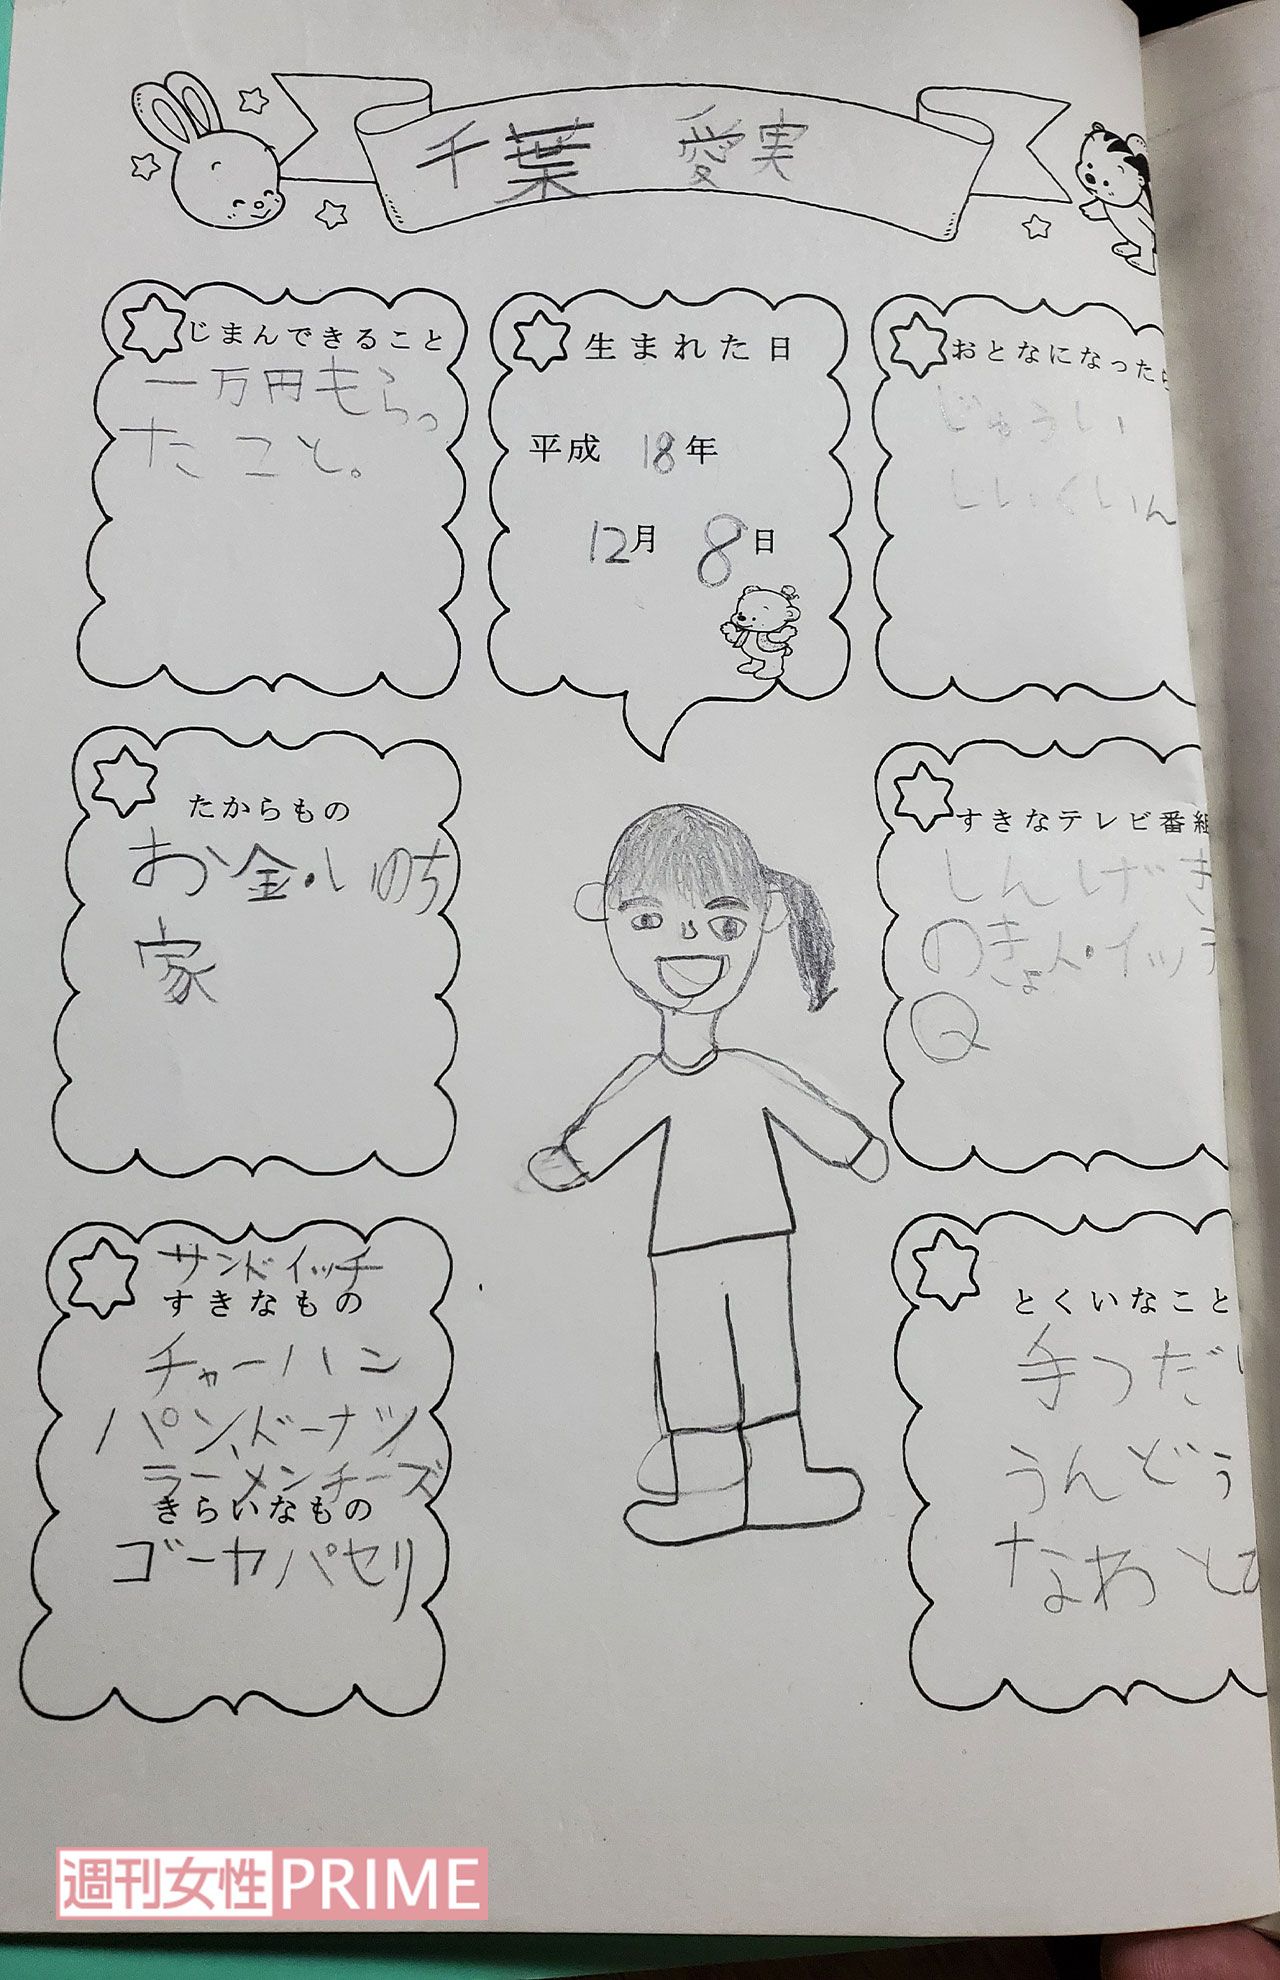 千葉 愛実
じまんできること
一万円もらっ
たこと。
生まれた日
平成 18年
12月 8日
おとなになったら
じゅうい
しいくいん
たからもの
お金・いのち
家
すきなテレビ番組
しんげき
のきょ人・イッテ
Q
サンドイッチ
すきなもの
チャーハン
パン、ドーナツ
ラーメンチーズ
きらいなもの
ゴーヤパセリ
とくいなこと
手つだい
うんどう
なわとび
週刊女性PRIME